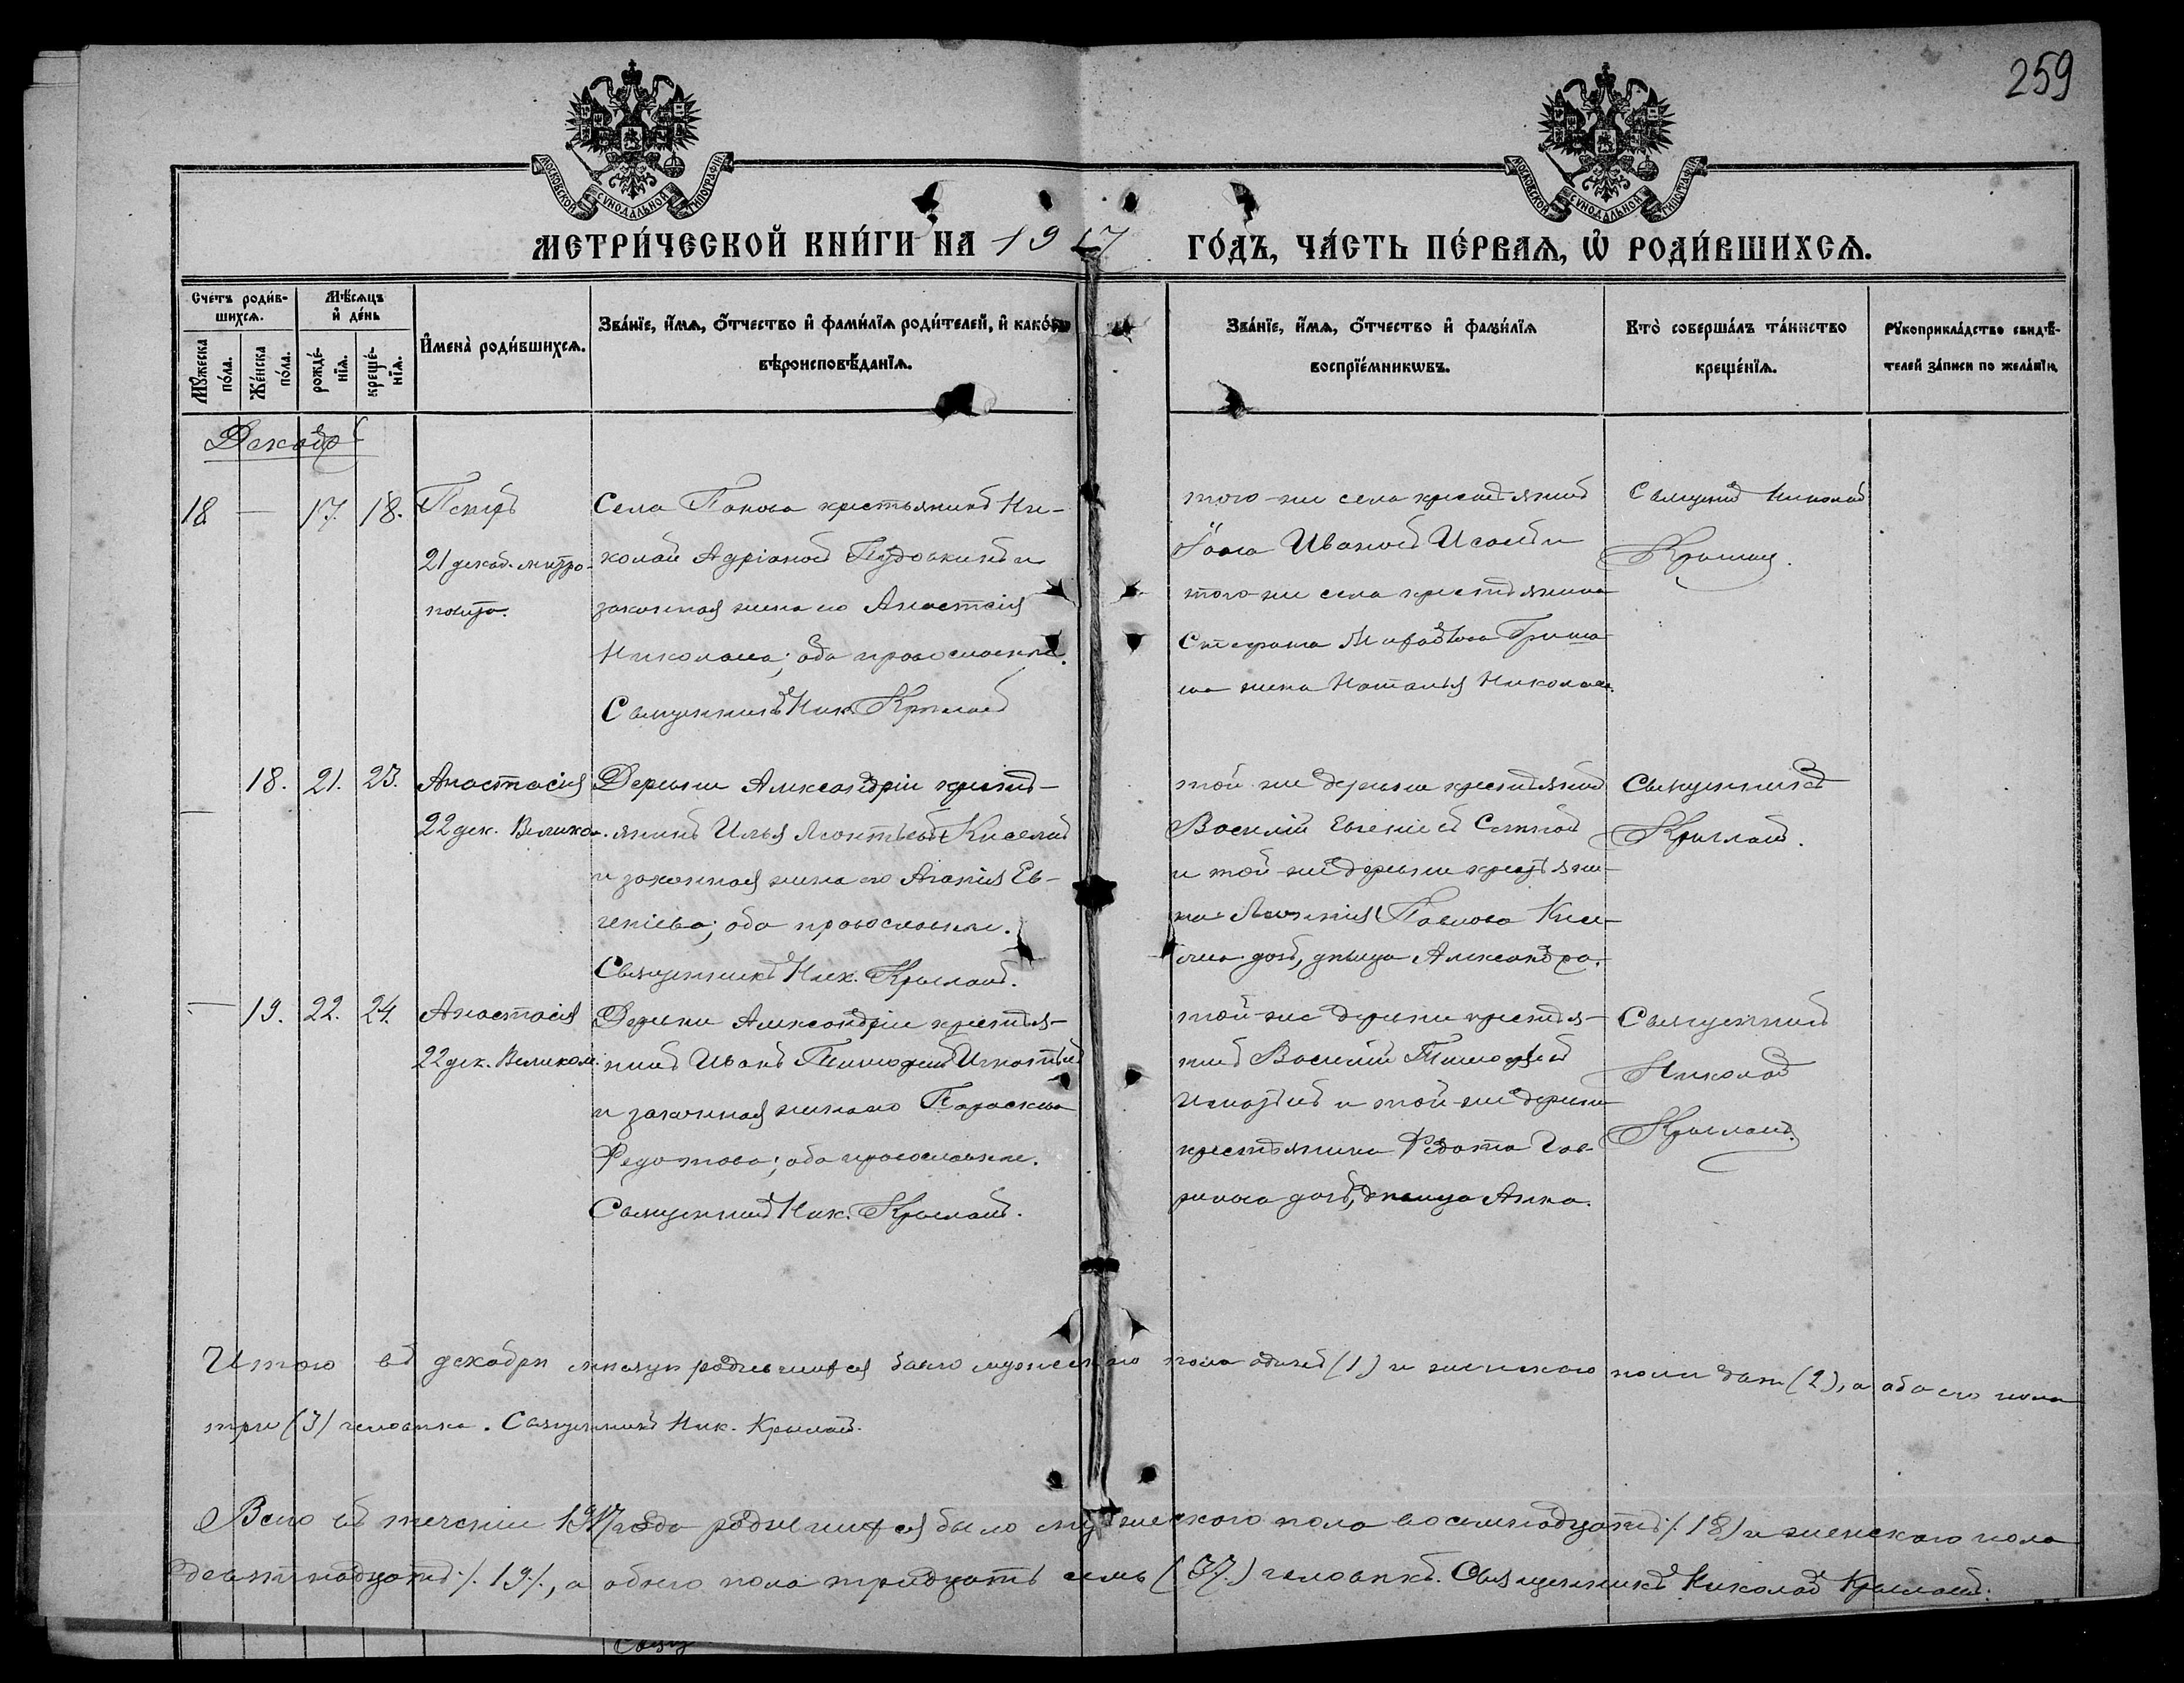 259
МОСКОВСКОЙ СУНОДАЛЬНОЙ ТИПОГРАФІИ
МОСКОВСКОЙ СУНОДАЛЬНОЙ ТИПОГРАФІИ
МЕТРИ́ЧЕСКОЙ КНИ́ГИ НА 1917 ГО́ДЪ, ЧА́СТЬ ПЕ́РВАѦ, Ѡ҆ РОДИ́ВШИХСѦ.
Сче́тъ роди́в-
шихсѧ.
Мѣ́сѧцъ
и҆ де́нь
Мꙋ́жеска по́ла.
Же́нска по́ла.
рожде́-
нїѧ.
креще́-
нїѧ.
И҆мена̀ роди́вшихсѧ.
Зва́нїе, и҆́мѧ, ѻ҆́тчество и҆ фами́лїѧ роди́телей, и҆ како́гѡ
вѣроисповѣ́данїѧ.
Зва́нїе, и҆́мѧ, ѻ҆́тчество и҆ фами́лїѧ
воспрїе́мникѡвъ.
Кто̀ соверша́лъ та́инство
креще́нїѧ.
Рꙋкоприкла́дство свидѣ́-
телей за́писи по жела́нїю.
Декабрь
18 — 17. 18. Петръ
21 декаб. митро-
полита.
Села Панова крестьянинъ Ни-
колай Адріановъ Пудовкинъ и
законная жена его Анастасія
Николаева; оба православные.
Священникъ Ник. Крыловъ
того-же села крестьянинъ
Іоаннъ Ивановъ Исаевъ и
того-же села крестьянина
Стефана
жена Наталья Николаева.
Священникъ Николай
Крыловъ.
— 18. 21. 23. Анастасія
22 дек. Великом.
Деревни Александріи крестья-
янинъ Илья Леонтьевъ Киселевъ
и законная жена его Агапія Ев-
геніева; оба православные.
Священникъ Ник. Крыловъ.
той-же деревни крестьянинъ
Василій Евгеніевъ
и той-же деревни крестьяни-
на Павлова Кисе-
лева дочь, дѣвица Александра.
Священникъ
Крыловъ.
— 19. 22. 24. Анастасія
22 дек. Великом.
Деревни Александріи крестья-
нинъ Иванъ Тимофеевъ Игнатьевъ
и законная жена его Параскева
Федотова; оба православные.
Священникъ Ник. Крыловъ.
той-же деревни крестья-
нинъ Василій Тимофеевъ
Игнатьевъ и той-же деревни
крестьянина Федота Гав-
рилова дочь, дѣвица Анна.
Священникъ
Николай
Крыловъ.
Итого въ декабрѣ мѣсяцѣ родившихся было мужескаго пола одинъ (1) и женскаго пола двѣ (2), а обоего пола
три (3) человѣка. Священникъ Ник. Крыловъ.
Всего въ теченіи 1917 года родившихся было мужескаго пола восемнадцать /. 18) и женскаго пола
девятнадцать /. 19 /., а обоего пола тридцать семь (37.) человѣкъ. Священникъ Николай Крыловъ.